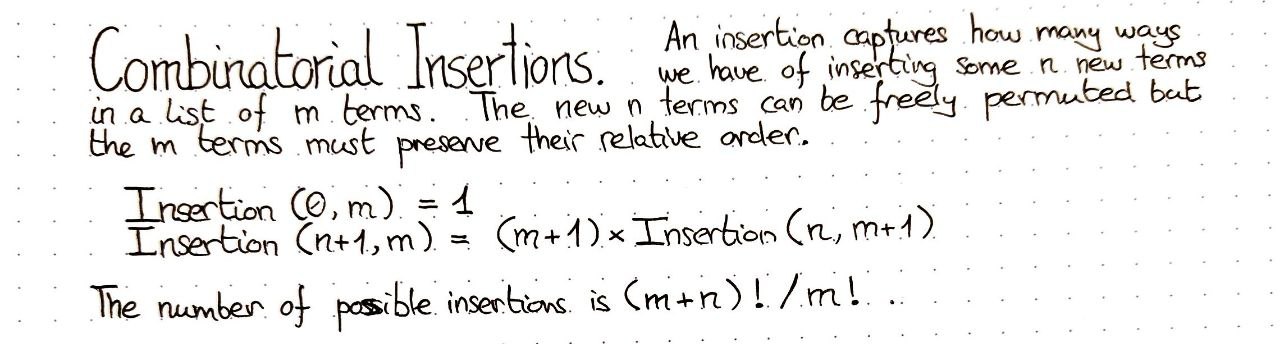 Combinatorial Insertions. An insertion captures how many ways
we have of inserting some n new terms
in a list of m terms. The new n terms can be freely permuted but
the m terms must preserve their relative order.
Insertion (0, m) = 1
Insertion (n+1, m) = (m+1) × Insertion (n, m+1)
The number of possible insertions is (m+n)! / m!.